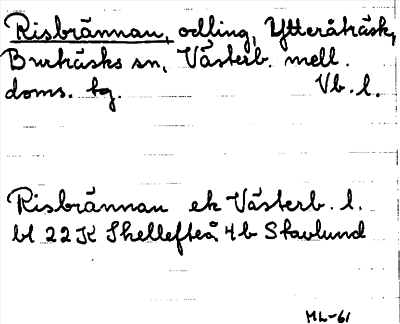 Risbrännan, odling, Ytteråträsk,
Burträsks sn, Västerb. mell.
doms. tg. Vb. l.
Risbrännan ek Västerb. l.
bl 22 K Skellefteå 4b Stavlund
ML-61